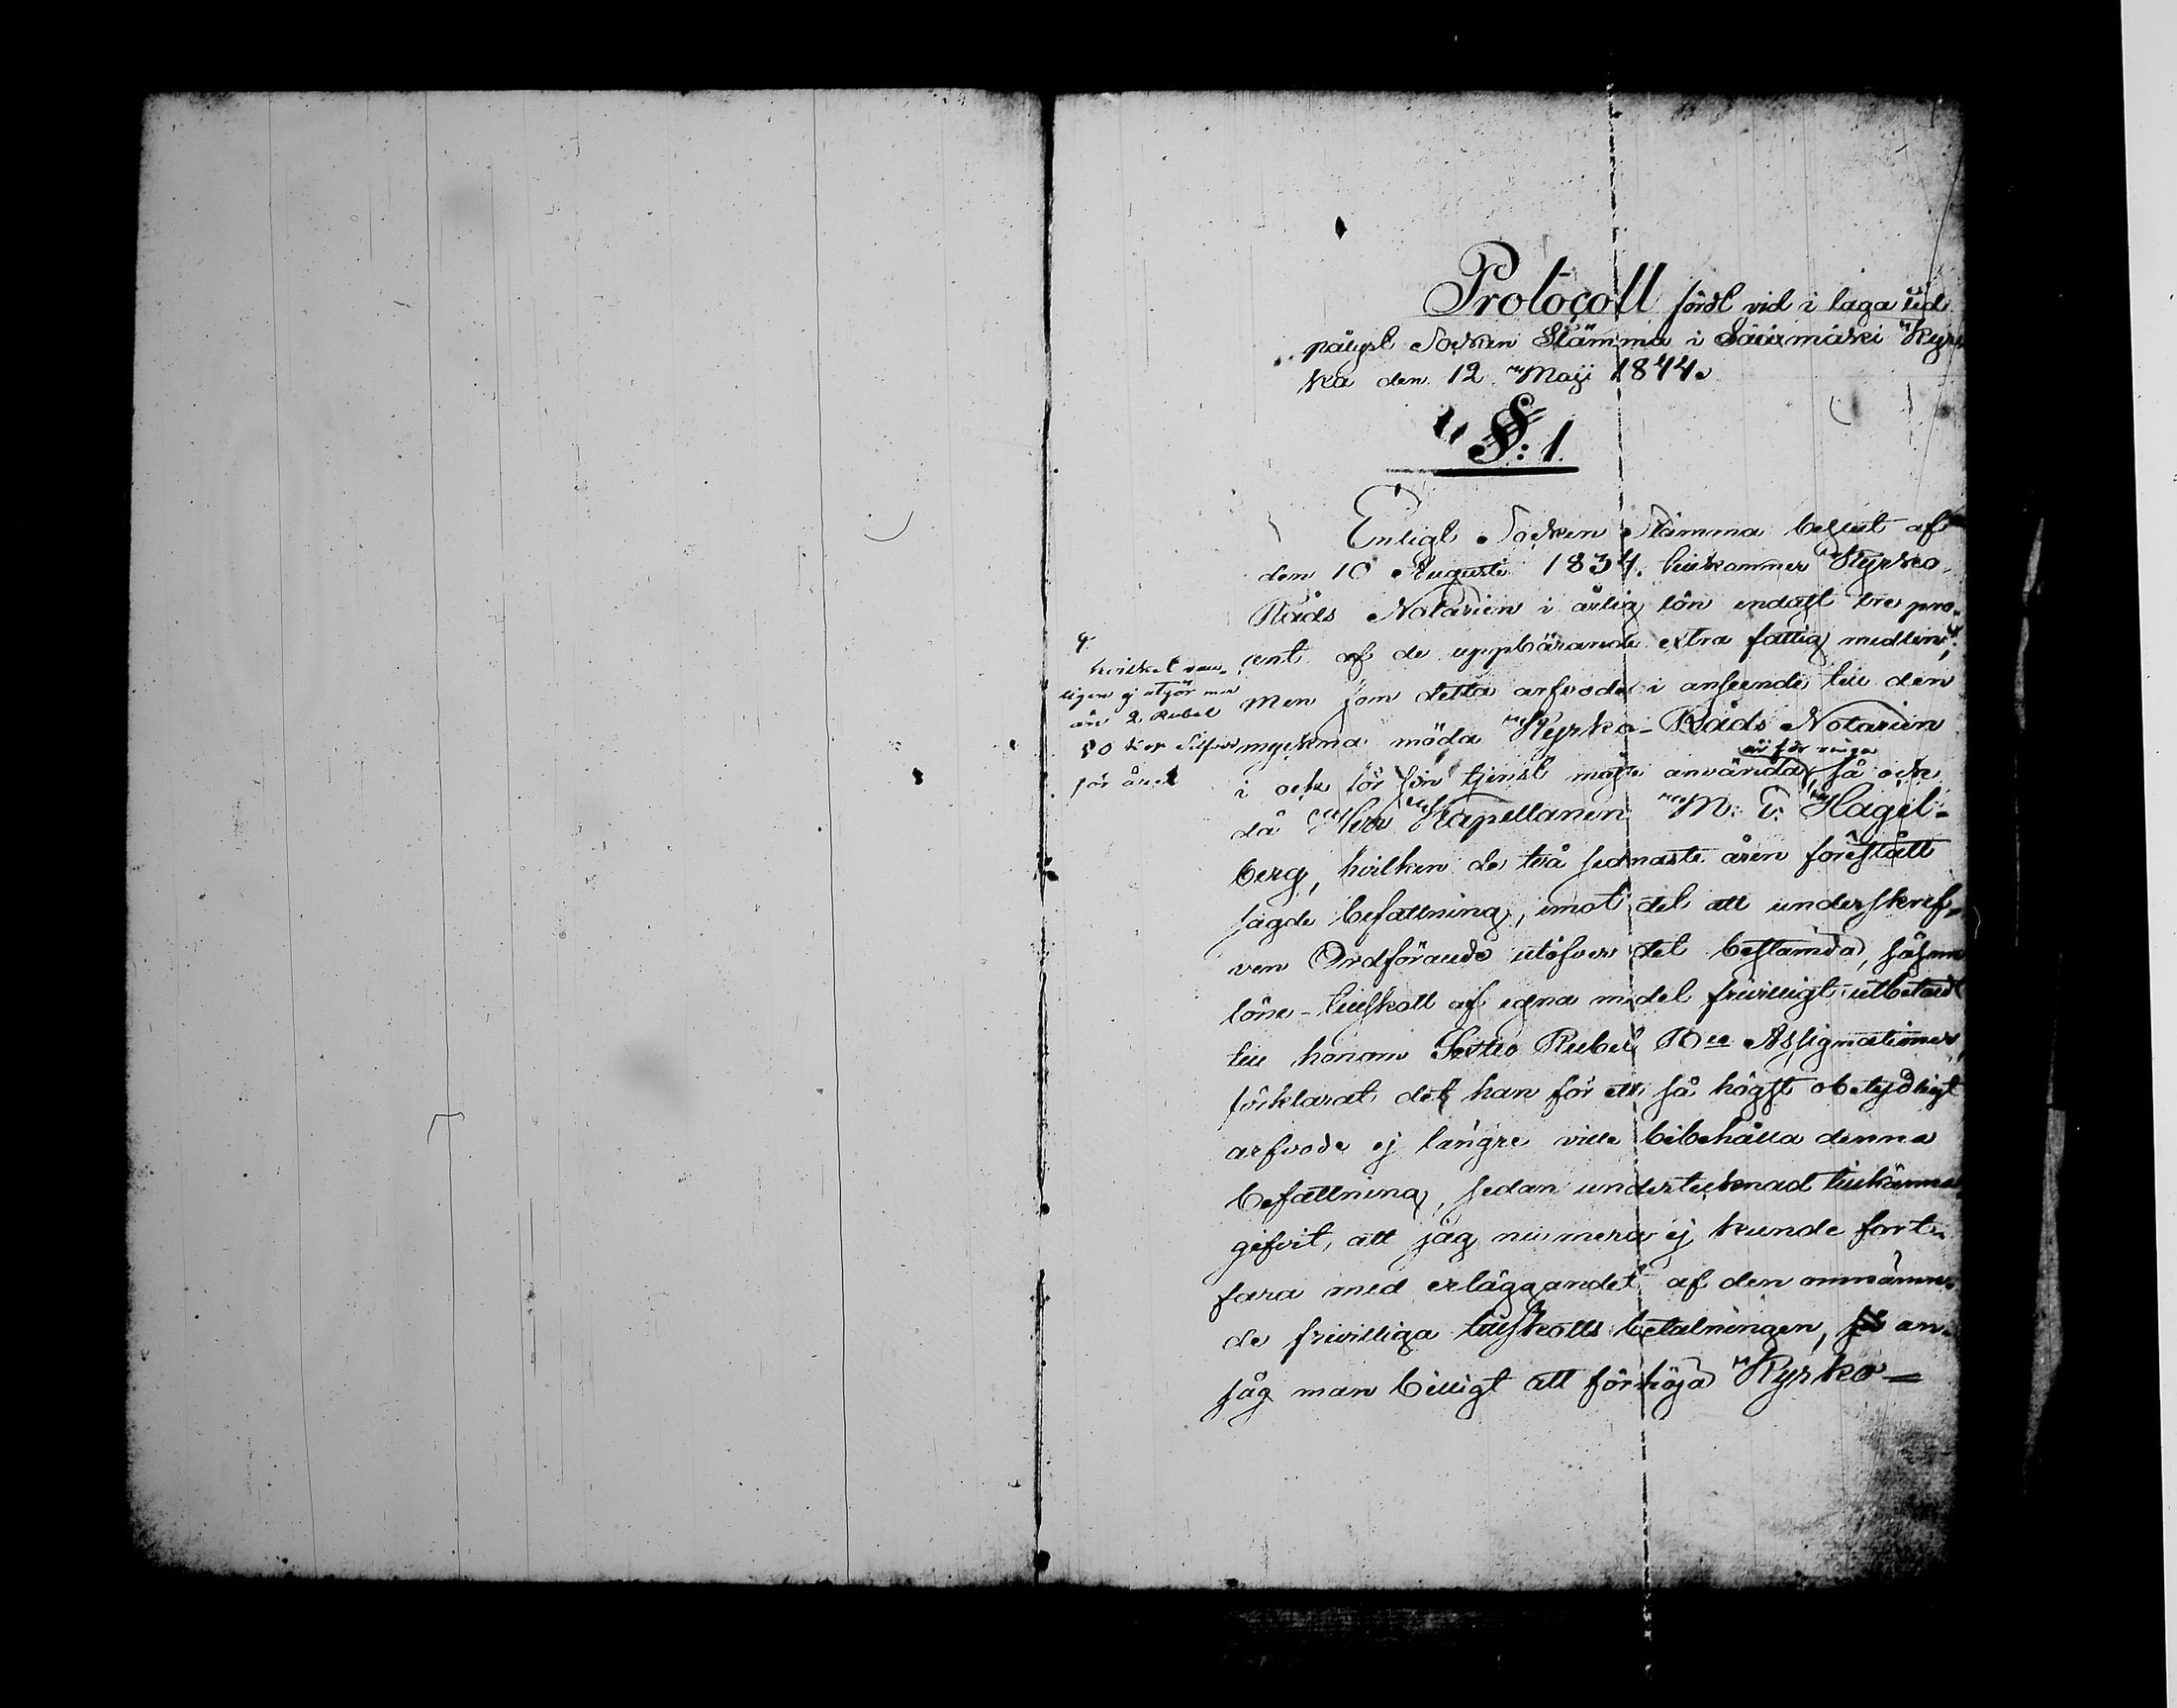 Protocoll fördt vid i laga tid
pålyst Socken Stämma i Sääxmäki Kyr-
ka den 12 Maji 1844.
§: 1.
Enligt Socken Stämma beslut af
den 10 Augusti 1834. tillkommer Kyrko
Råds Notarien i årlig lön endast tre pro-
cent af de uppbärande extra fattig medlen,
men som detta arfvode i anseende till den
myckna möda Kyrko-Råds Notarien
i och för sin tjenst måste använda är för ringa, så och
då Herr Kapellanen M: T: Hagel-
berg, hvilken de två sednaste åren förestått
sagde befattning, emot det att underskref-
ven Ordförande utöfver det bestämda, såsom
löne-tillskott af egna medel frivilligt utbetalt
till honom Sextio Rubel B:co Assignationer,
förklarat det han för ett så högst obetydligt
arfvode ej längre ville bibehålla denna
befattning, sedan undertecknad tillkänna
gifvit, att jag numera ej kunde fort-
fara med erläggandet af den omnämn-
de frivilliga tillskotts betalningen, så an-
såg man billigt att förhöja Kyrko-
hvilket van-
ligen ej utgör mer
än 2 Rubel
80 kop Silfver
för året